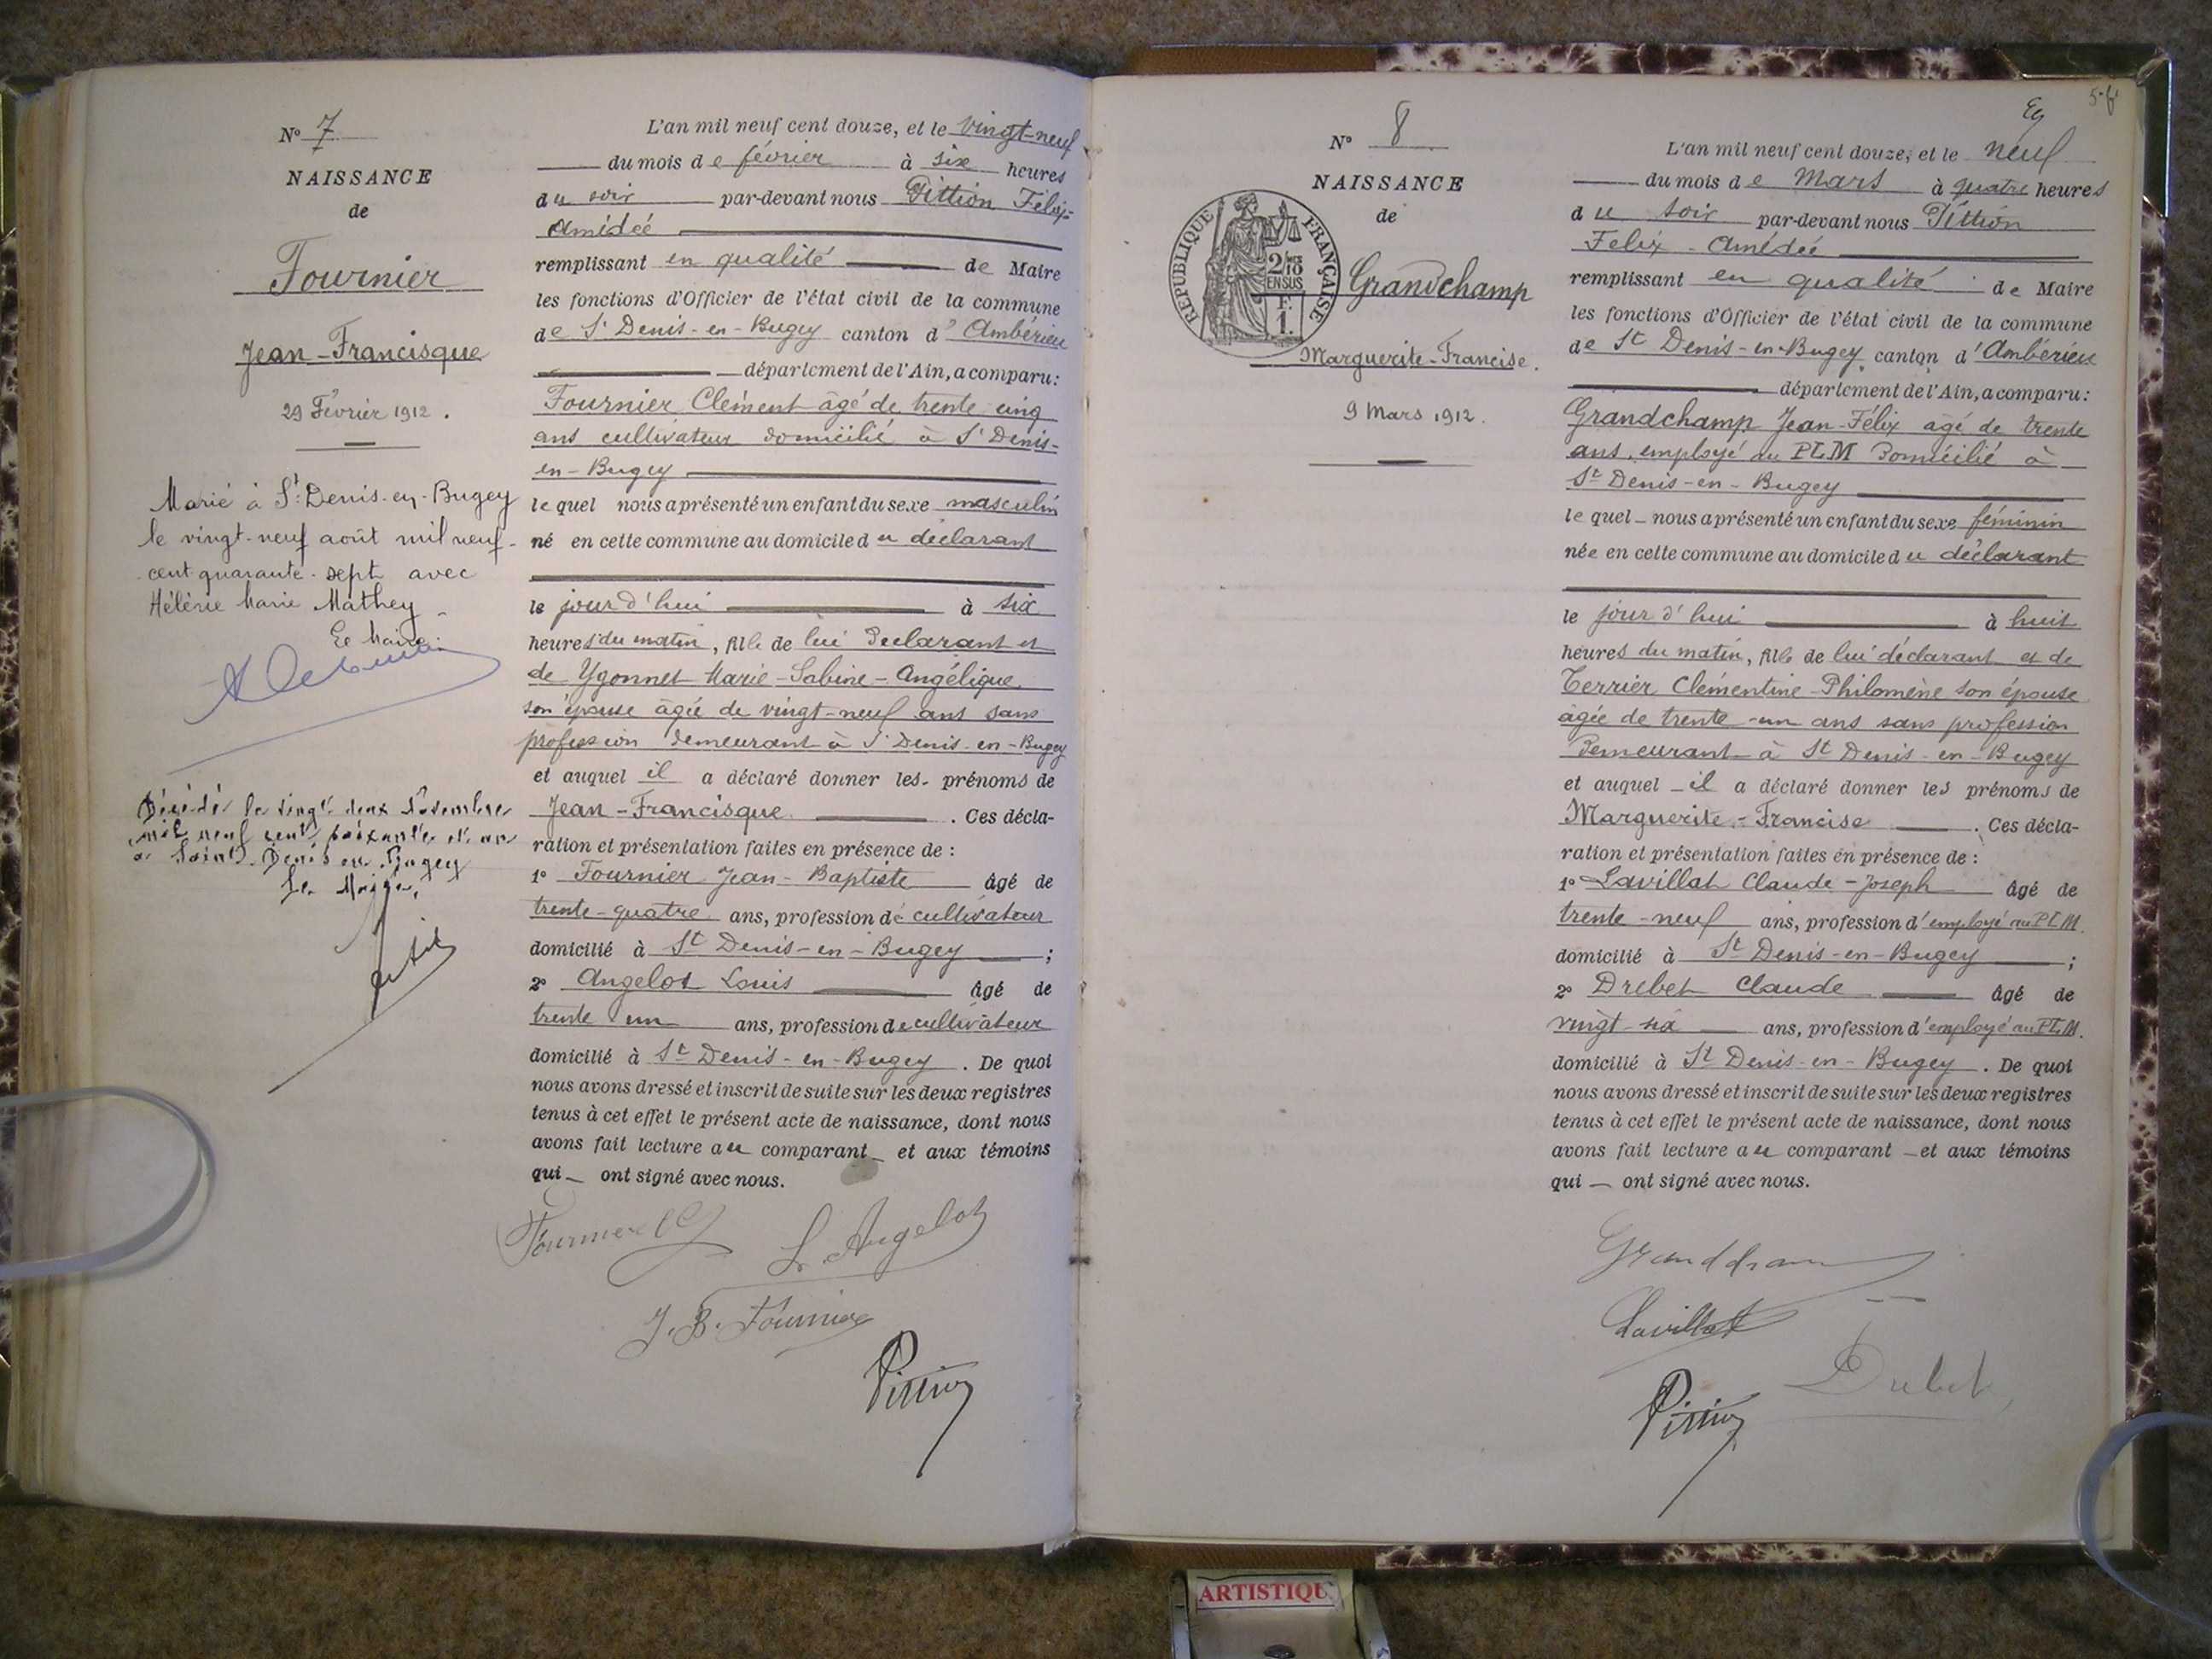 N° 7
NAISSANCE
de
Fournier
Jean-Francisque
29 Février 1912.
Marié à St Denis-en-Bugey
le vingt-neuf août mil neuf-
cent quarante-sept avec
Hélène Marie Mathey
Le Maire:
Décédé le vingt deux Novembre
mil neuf cent soixante et un
à Saint-Denis en Bugey
Le Maire,
L'an mil neuf cent douze, et le vingt-neuf
du mois de février à six heures
du soir par-devant nous Pittion Félix-
Amédée
remplissant en qualité de Maire
les fonctions d'Officier de l'état civil de la commune
de St Denis-en-Bugey canton d'Ambérieu
département de l'Ain, a comparu:
Fournier Clément âgé de trente cinq
ans cultivateur domicilié à St Denis-
en-Bugey
le quel nous a présenté un enfant du sexe masculin
né en cette commune au domicile du déclarant
le jour d'hui à six
heures du matin, fils de lui déclarant et
de Ygonnet Marie-Sabine-Angélique
son épouse âgée de vingt-neuf ans sans
profession demeurant à St Denis-en-Bugey
et auquel il a déclaré donner les prénoms de
Jean-Francisque. Ces décla-
ration et présentation faites en présence de :
1° Fournier Jean-Baptiste âgé de
trente-quatre ans, profession de cultivateur
domicilié à St Denis-en-Bugey ;
2° Angelot Louis âgé de
trente un ans, profession de cultivateur
domicilié à St Denis-en-Bugey. De quoi
nous avons dressé et inscrit de suite sur les deux registres
tenus à cet effet le présent acte de naissance, dont nous
avons fait lecture au comparant et aux témoins
qui ont signé avec nous.
Fournier C
L. Angelot
J. B. Fournier
Pittion
N° 8
NAISSANCE
de
RÉPUBLIQUE FRANÇAISE
2/10
EN SUS
F.
1.
Grandchamp
Marguerite-Francise.
9 Mars 1912.
L'an mil neuf cent douze, et le neuf
du mois de Mars à quatre heures
du soir par-devant nous Pittion
Felix-Amédée
remplissant en qualité de Maire
les fonctions d'Officier de l'état civil de la commune
de St Denis-en-Bugey canton d'Ambérieu
département de l'Ain, a comparu:
Grandchamp Jean-Félix âgé de trente
ans, employé au PLM Domicilié à
St Denis-en-Bugey
le quel nous a présenté un enfant du sexe féminin
née en cette commune au domicile du déclarant
le jour d'hui à huit
heures du matin, fille de lui déclarant et de
Terrier Clémentine-Philomène son épouse
âgée de trente-un ans sans profession
Demeurant à St Denis-en-Bugey
et auquel il a déclaré donner les prénoms de
Marguerite-Francise. Ces décla-
ration et présentation faites en présence de :
1° Lavillat Claude-Joseph âgé de
trente-neuf ans, profession d'employé au PLM.
domicilié à St Denis-en-Bugey ;
2° Drebet Claude âgé de
vingt-six ans, profession d'employé au PLM.
domicilié à St Denis-en-Bugey. De quoi
nous avons dressé et inscrit de suite sur les deux registres
tenus à cet effet le présent acte de naissance, dont nous
avons fait lecture au comparant et aux témoins
qui ont signé avec nous.
Lavillat
Pittion
ARTISTIQU